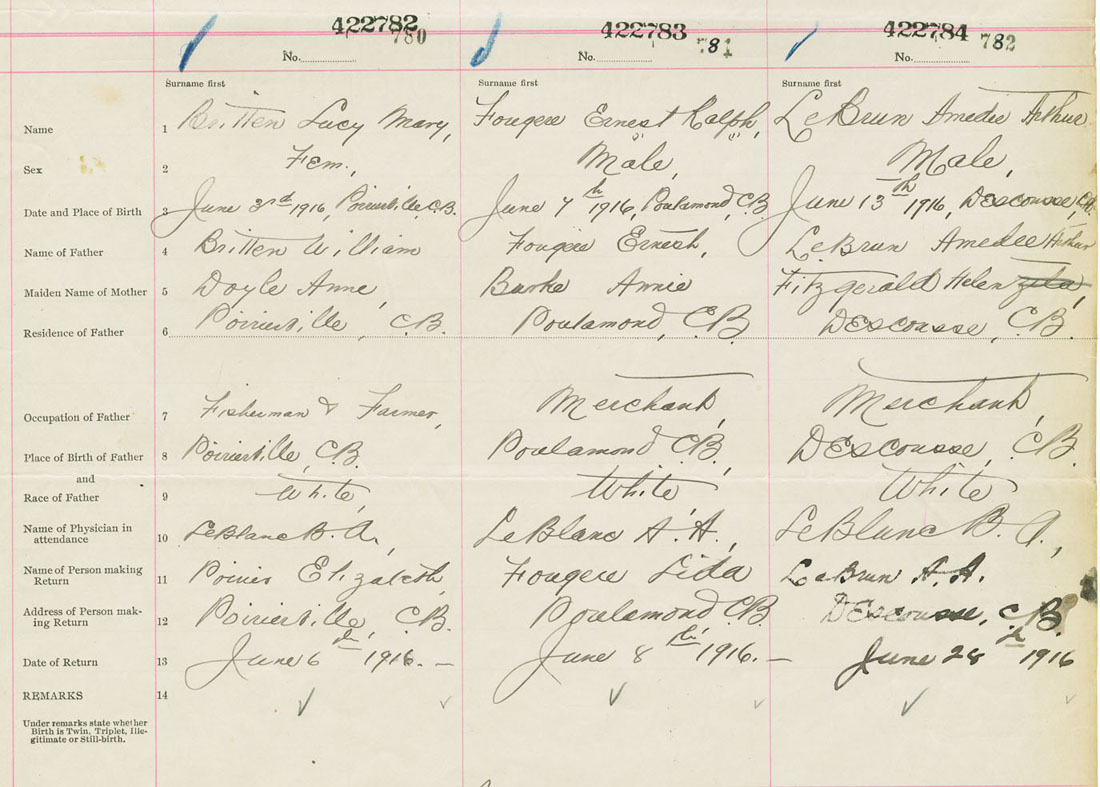 422782 422783 422784
780 781 782
No. No. No.
Surname first Surname first Surname first
Name 1 Britten Lucy Mary, Fougere Ernest Ralph, LeBrun Amedee Arthur
Sex 2 Fem., Male, Male,
Date and Place of Birth 3 June 3rd 1916, Poirierville, C.B. June 7th 1916, Poulamond, C.B. June 13th 1916, DEscousse, C.B.
Name of Father 4 Britten William Fougere Ernest, LeBrun Amedee Arthur
Maiden Name of Mother 5 Doyle Anne, Burke Annie Fitzgerald Helen
Residence of Father 6 Poirierville, C.B. Poulamond, C.B. DEscousse, C.B.
Occupation of Father 7 Fisherman & Farmer, Merchant, Merchant,
Place of Birth of Father 8 Poirierville, C.B. Poulamond C.B., DEscousse, C.B.,
and
Race of Father 9 White, White, White
Name of Physician in
attendance 10 LeBlanc B. A., LeBlanc A. A., LeBlanc B. A.,
Name of Person making
Return 11 Poirier Elizabeth, Fougere Lida LeBrun A. A.
Address of Person mak-
ing Return 12 Poirierville, C.B. Poulamond C.B. DEscousse, C.B.
Date of Return 13 June 6th 1916. — June 8th 1916. — June 28th 1916
REMARKS 14
Under remarks state whether
Birth is Twin, Triplet, Ille-
gitimate or Still-birth.